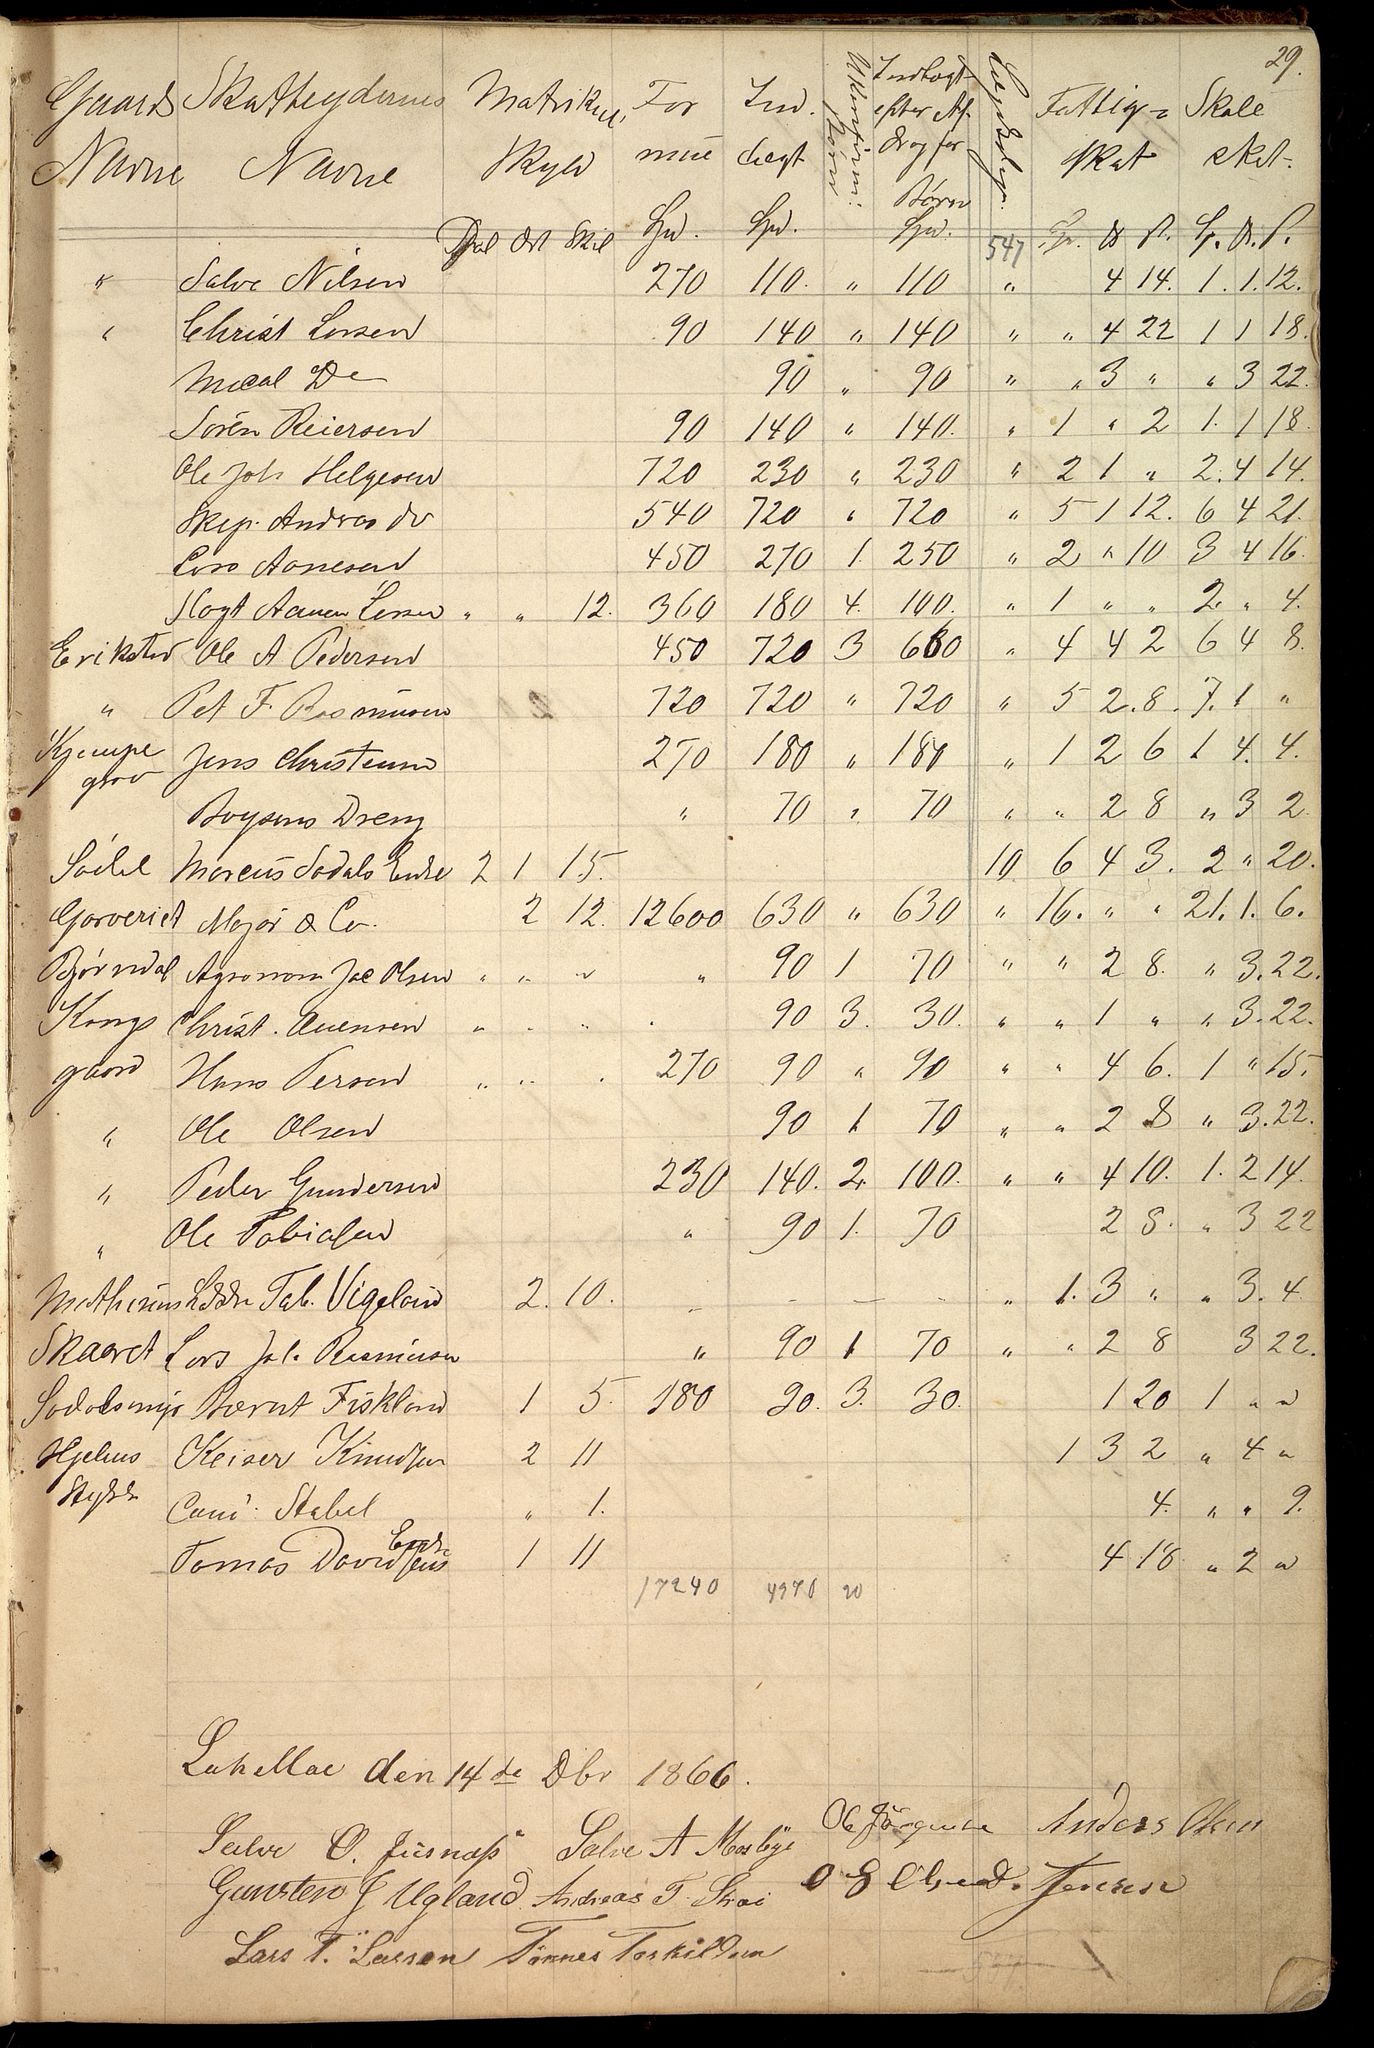 29.
Gaards Skatteydernes Matrikul For Ind Uconfirm: Indtægt Fattig= Skole
Navne Navne Skyld mue tægt Børn efter Af- skat skat.
drag for
Børn
Dal Ort Skil Spd. Spd. Spd. 547 Sp. ß. Sp. ß.
" Salve Nilsen 270 110. " 110 " 4 14. 1. 1. 12.
" Christ Larsen 90 140 " 140 " " 4 22 1 1 18.
Do 90 " 90 " " 3 " " 3 22.
Sörèn Reiersen 90 140 " 140. " 1 " 2 1. 1 18.
Ole Joh Helgesen 720 230 " 230 " 2 1 " 2. 4 14.
Skip. Andreas do 540 720 " 720 " 5 1 12. 6 4 21.
Lars Aanesen 450 270 1. 250 " 2 " 10 3 4 16.
Flogt Aanen Larsen " " 12. 360 180 4. 100. " 1 " " 2 " 4.
Erikstad Ole A Pedersen 450 720 3 660 " 4 4 2 6 4 8.
" Pet F. Rasmusen 720 720 " 720 " 5 2. 8. 7. 1 "
Kjempe Jens Christensen 270 180 " 180 " 1 2 6 1 4. 4.
grav
Boysens Dreng " 70 " 70 " " 2 8 " 3 2
Södal Marcus Sodals Enke 2 1 15. 10 6 4 3. 2 " 20.
Garveriet Majór & Co. 2 12. 12600 630 " 630 " 16. " " 21. 1. 6.
Bjørndal Agronom Jac Olsen " " " " 90 1 70 " " 2 8. " 3. 22.
Kongs Christ. Auensen " " " " 90 3. 30. " " 1 " " 3. 22.
gaard Hans Persen " " " 270 90 " 90 " " 4 6. 1 " 15.
" Ole Olsen 90 1 70 " " 2 8 " 3. 22.
" Peder Gundersen 230 140. 2 100. " " 4 10. 1. 2 14.
" Ole Tobiasen " 90 1. 70 2 8. " 3 22
Tab. Vigeland 2. 10. - - - - " 1. 3 " " 3. 4
Skaaret Lars Joh. Rasmusen " 90 1 70 " " 2 8 3 22.
Sodalsmyr Bernt Fiskland 1 5. 180 90. 3. 30. 1 20 1 " "
Hjelms Keiser Knudsen 2 11 1 3 2 " 4 "
Stykke
Stabel " 1. 4. " " 9.
Tomas Davidsens Enke 1 11 4 18 " 2 "
17240 4970 20
Lahellae den 14de Dbr 1866.
Salve O. Jusnæs Salve A Mosbye Ole Jörgensen Anders Olsen
Gunsten J Ugland Andreas T. Strai O E Olsen D. Jensen
Lars T. Larsen Tönnes Torkildsen